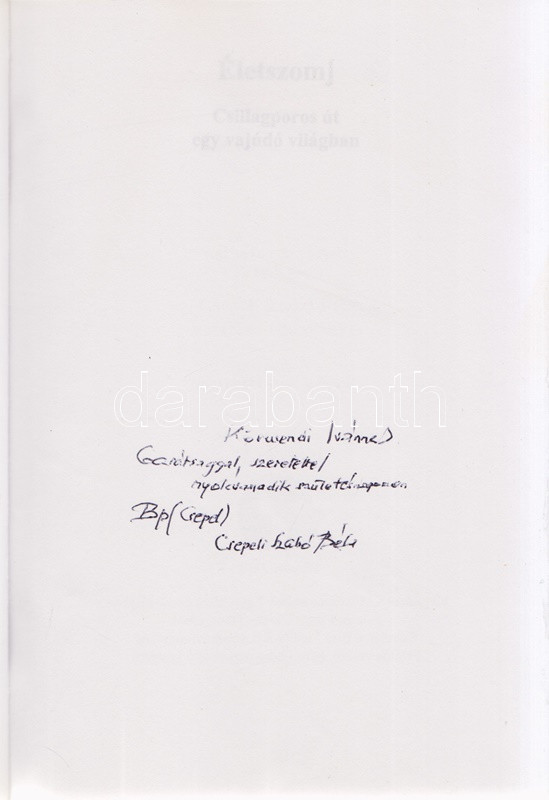 Életszomj
Csillagporos út
egy vajúdó világban
darabanth
Körmendi Ivánnak
barátsággal, szeretettel
nyolcvanadik születésnapomon
Bp (Csepel)
Csepeli Szabó Béla